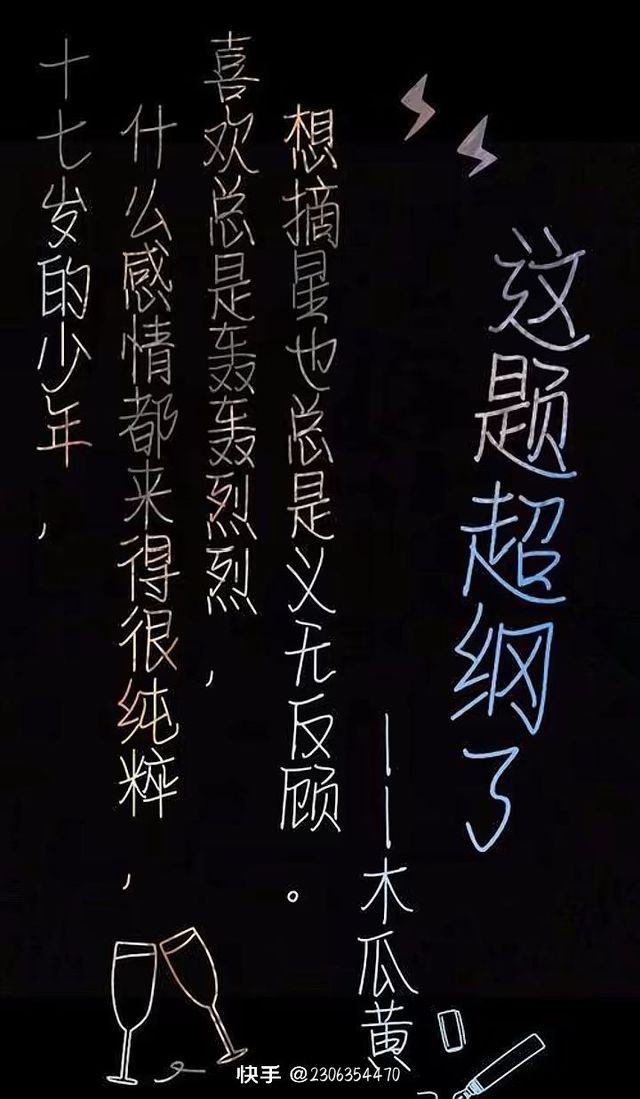 十七岁的少年，
什么感情都来得很纯粹，
喜欢总是轰轰烈烈，
想摘星也总是义无反顾。
——木瓜黄
这题超纲了
快手 @2306354470